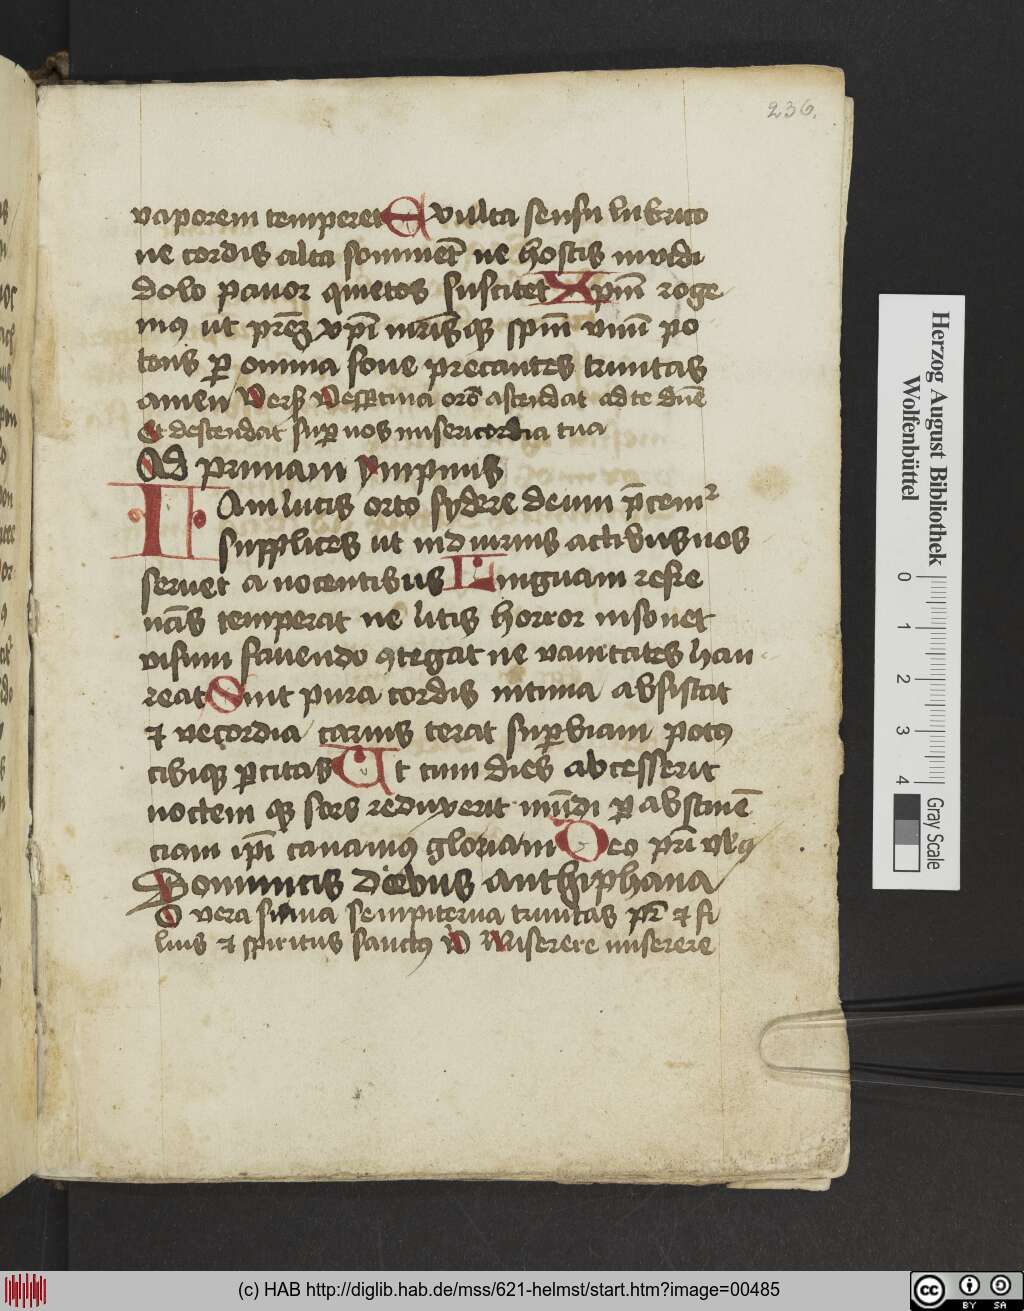 236.
vaporem temperet Exuta sensu lubrico
ne cordis alta sompnient ne hostis invidi
dolo pavor quietos suscitet Xpm̄ roge
mꝰ ut prēꝫ xpī nr̄isqꝫ spm̄ unū po
tens ꝑ omnia fove precantes trinitas
amen Vers̄ Vesꝑtina orō ascendat ad te dn̄e
Et descendat suꝑ nos misericordia tua
Ad primam ympnus
IAm lucis orto sydere deum p̄cemꝰ
supplices ut in diurnis actibus nos
servet a nocentibus Linguam refre
nās temperat ne litis horror insonet
visum fovendo ꝯtegat ne vanitates hau
reat Sint pura cordis intima absistat
⁊ vecordia carnis terat suꝑbiam potꝰ
cibiqꝫ ꝑcitas Ut cum dies abcesserit
noctem qꝫ sors reduxerit mūdi ꝑ abstinē
ciam ipī canamꝰ gloriam Deo pr̄i
Dominicis diebus anthiphana
O vera summa sempiterna trinitas pr̄ ⁊ fi
lius ⁊ spiritus sanctꝰ V Miserere miserere
Herzog August Bibliothek
Wolfenbüttel
0 1 2 3 4
Gray Scale
(c) HAB http://diglib.hab.de/mss/621-helmst/start.htm?image=00485
cc BY SA